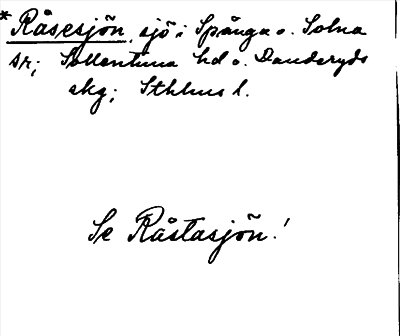 *Råsesjön, sjö i Spånga o. Solna
sr; Sollentuna hd o. Danderyds
skg; Sthlms l.
Se Råstasjön!